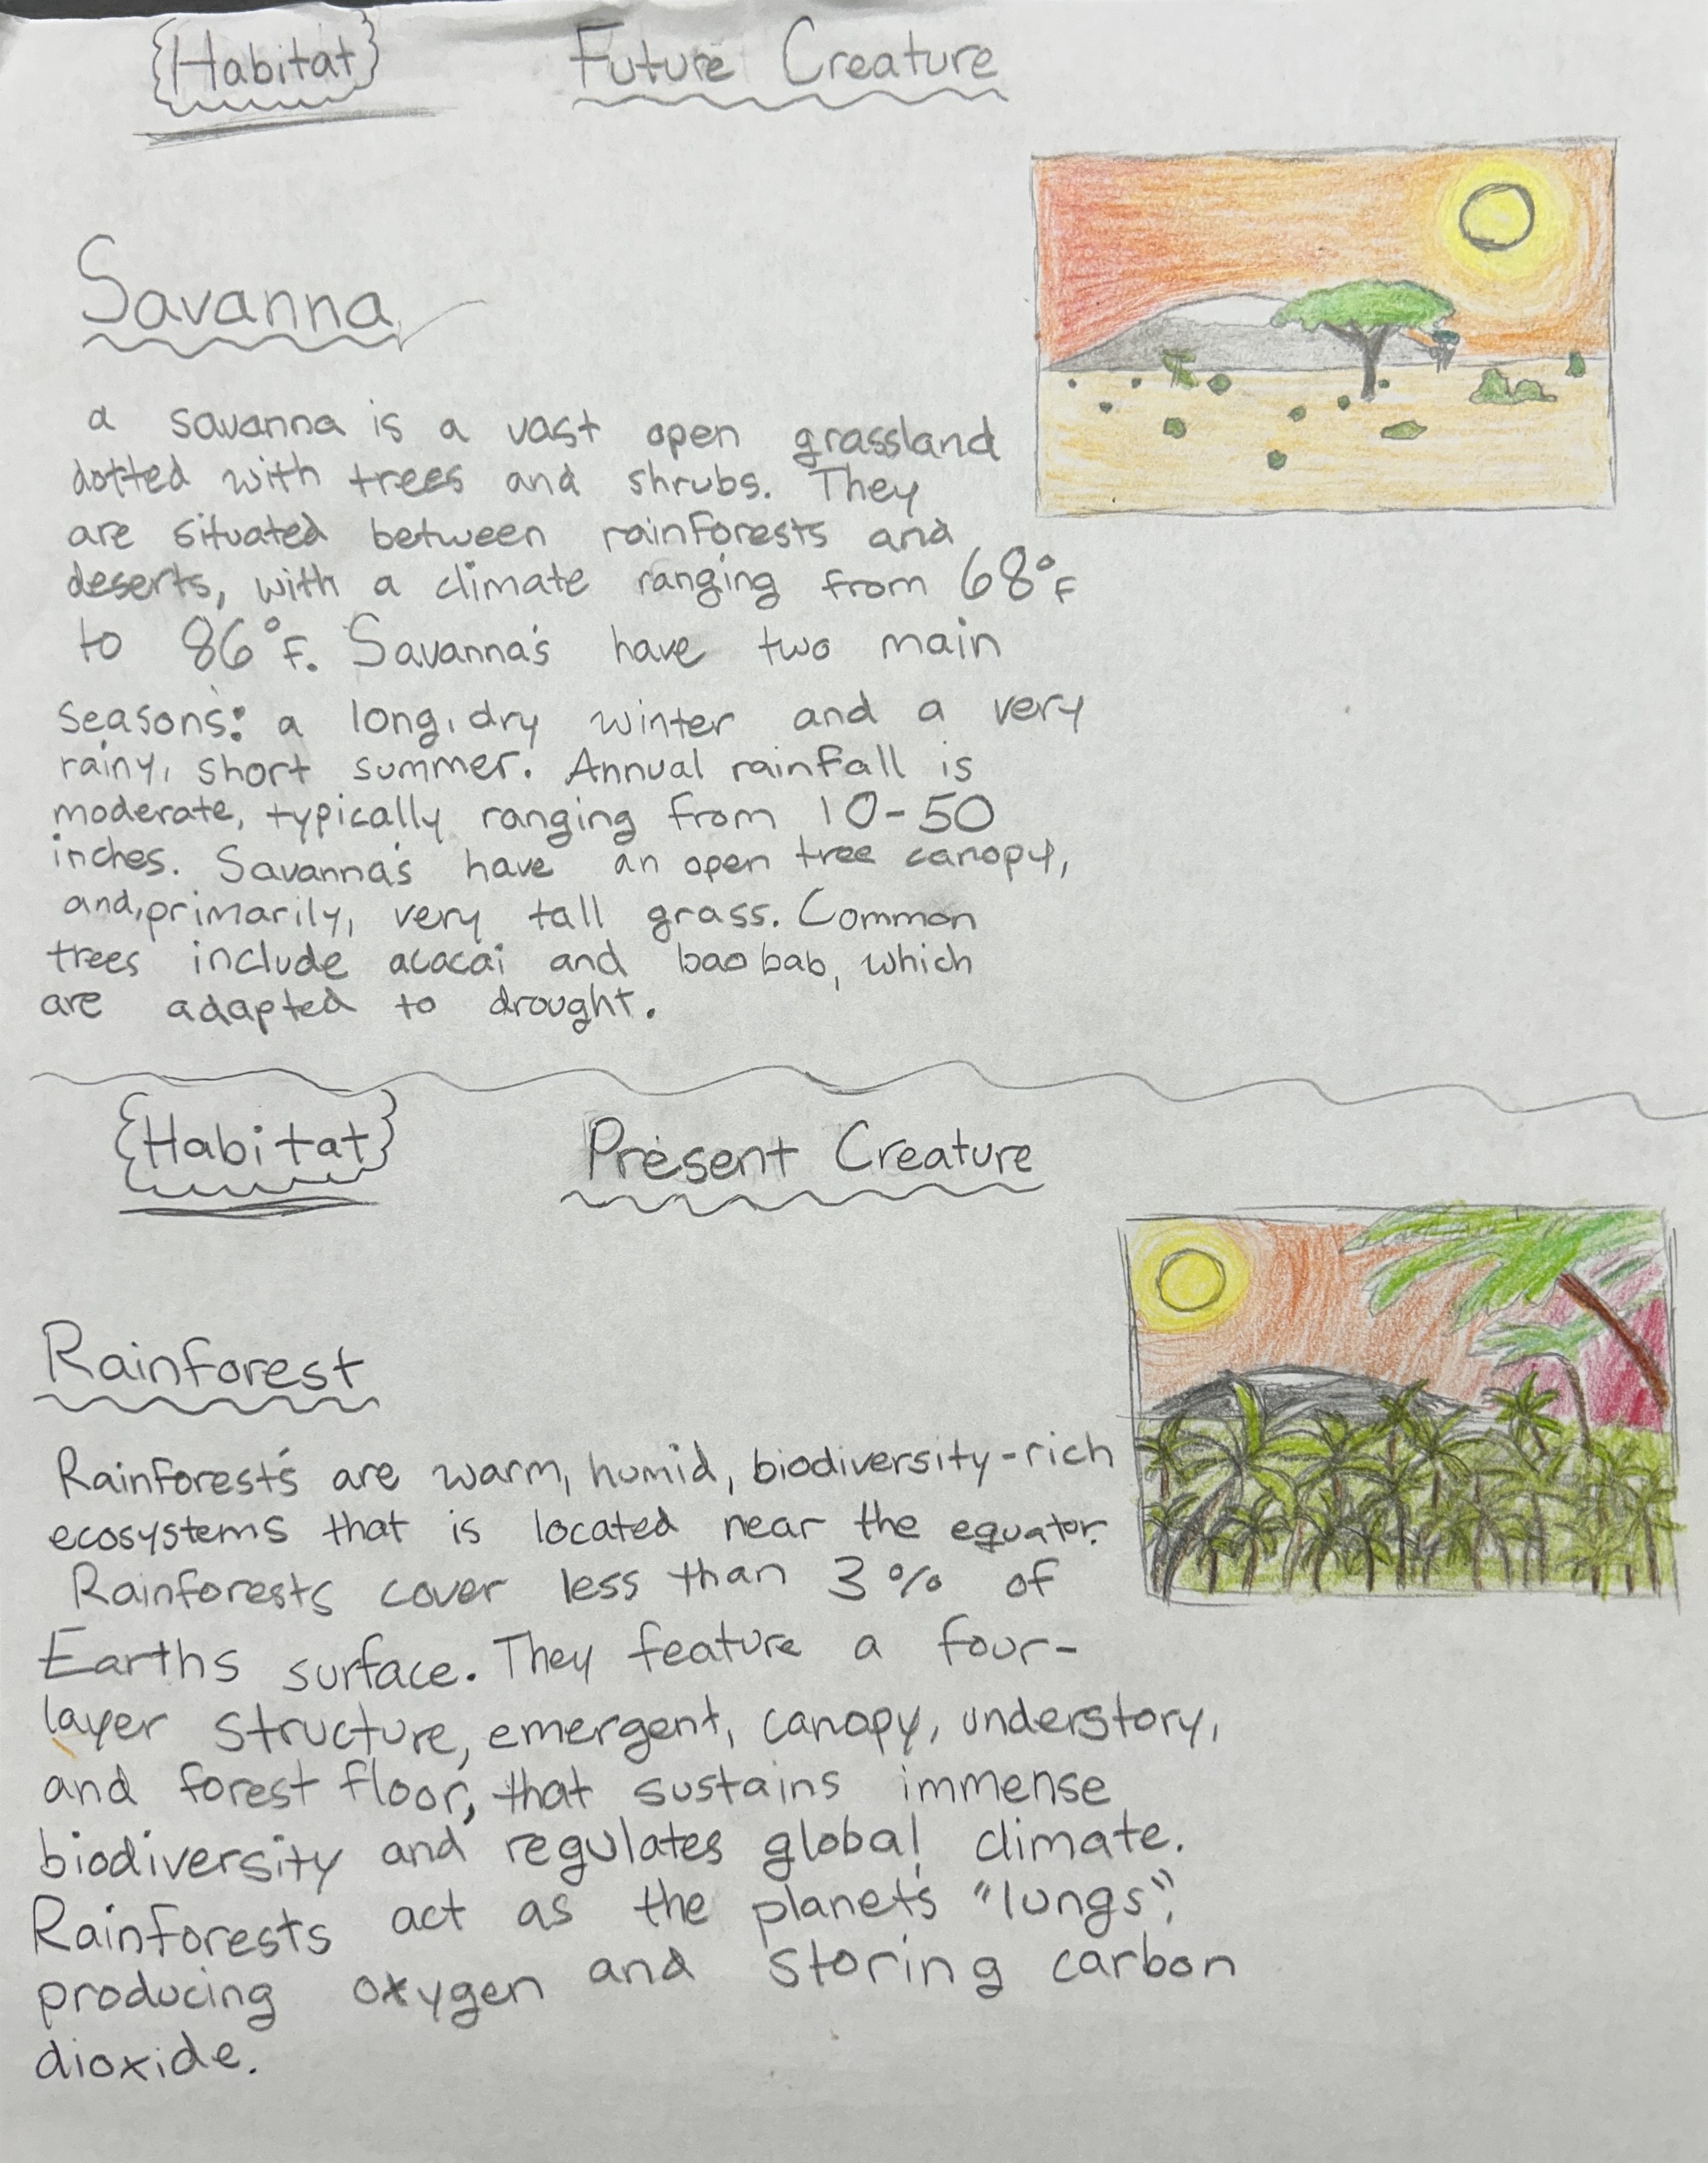 {Habitat}
Future Creature
Savanna
a savanna is a vast open grassland
dotted with trees and shrubs. They
are situated between rainforests and
deserts, with a climate ranging from 68°F
to 86°F. Savanna's have two main
seasons: a long, dry winter and a very
rainy, short summer. Annual rainfall is
moderate, typically ranging from 10-50
inches. Savanna's have an open tree canopy,
and, primarily, very tall grass. Common
trees include acacai and baobab, which
are adapted to drought.
{Habitat}
Present Creature
Rainforest
Rainforest's are warm, humid, biodiversity-rich
ecosystems that is located near the equator.
Rainforests cover less than 3% of
Earths surface. They feature a four-
layer structure, emergent, canopy, understory,
and forest floor, that sustains immense
biodiversity and regulates global climate.
Rainforests act as the planet's "lungs",
producing oxygen and storing carbon
dioxide.